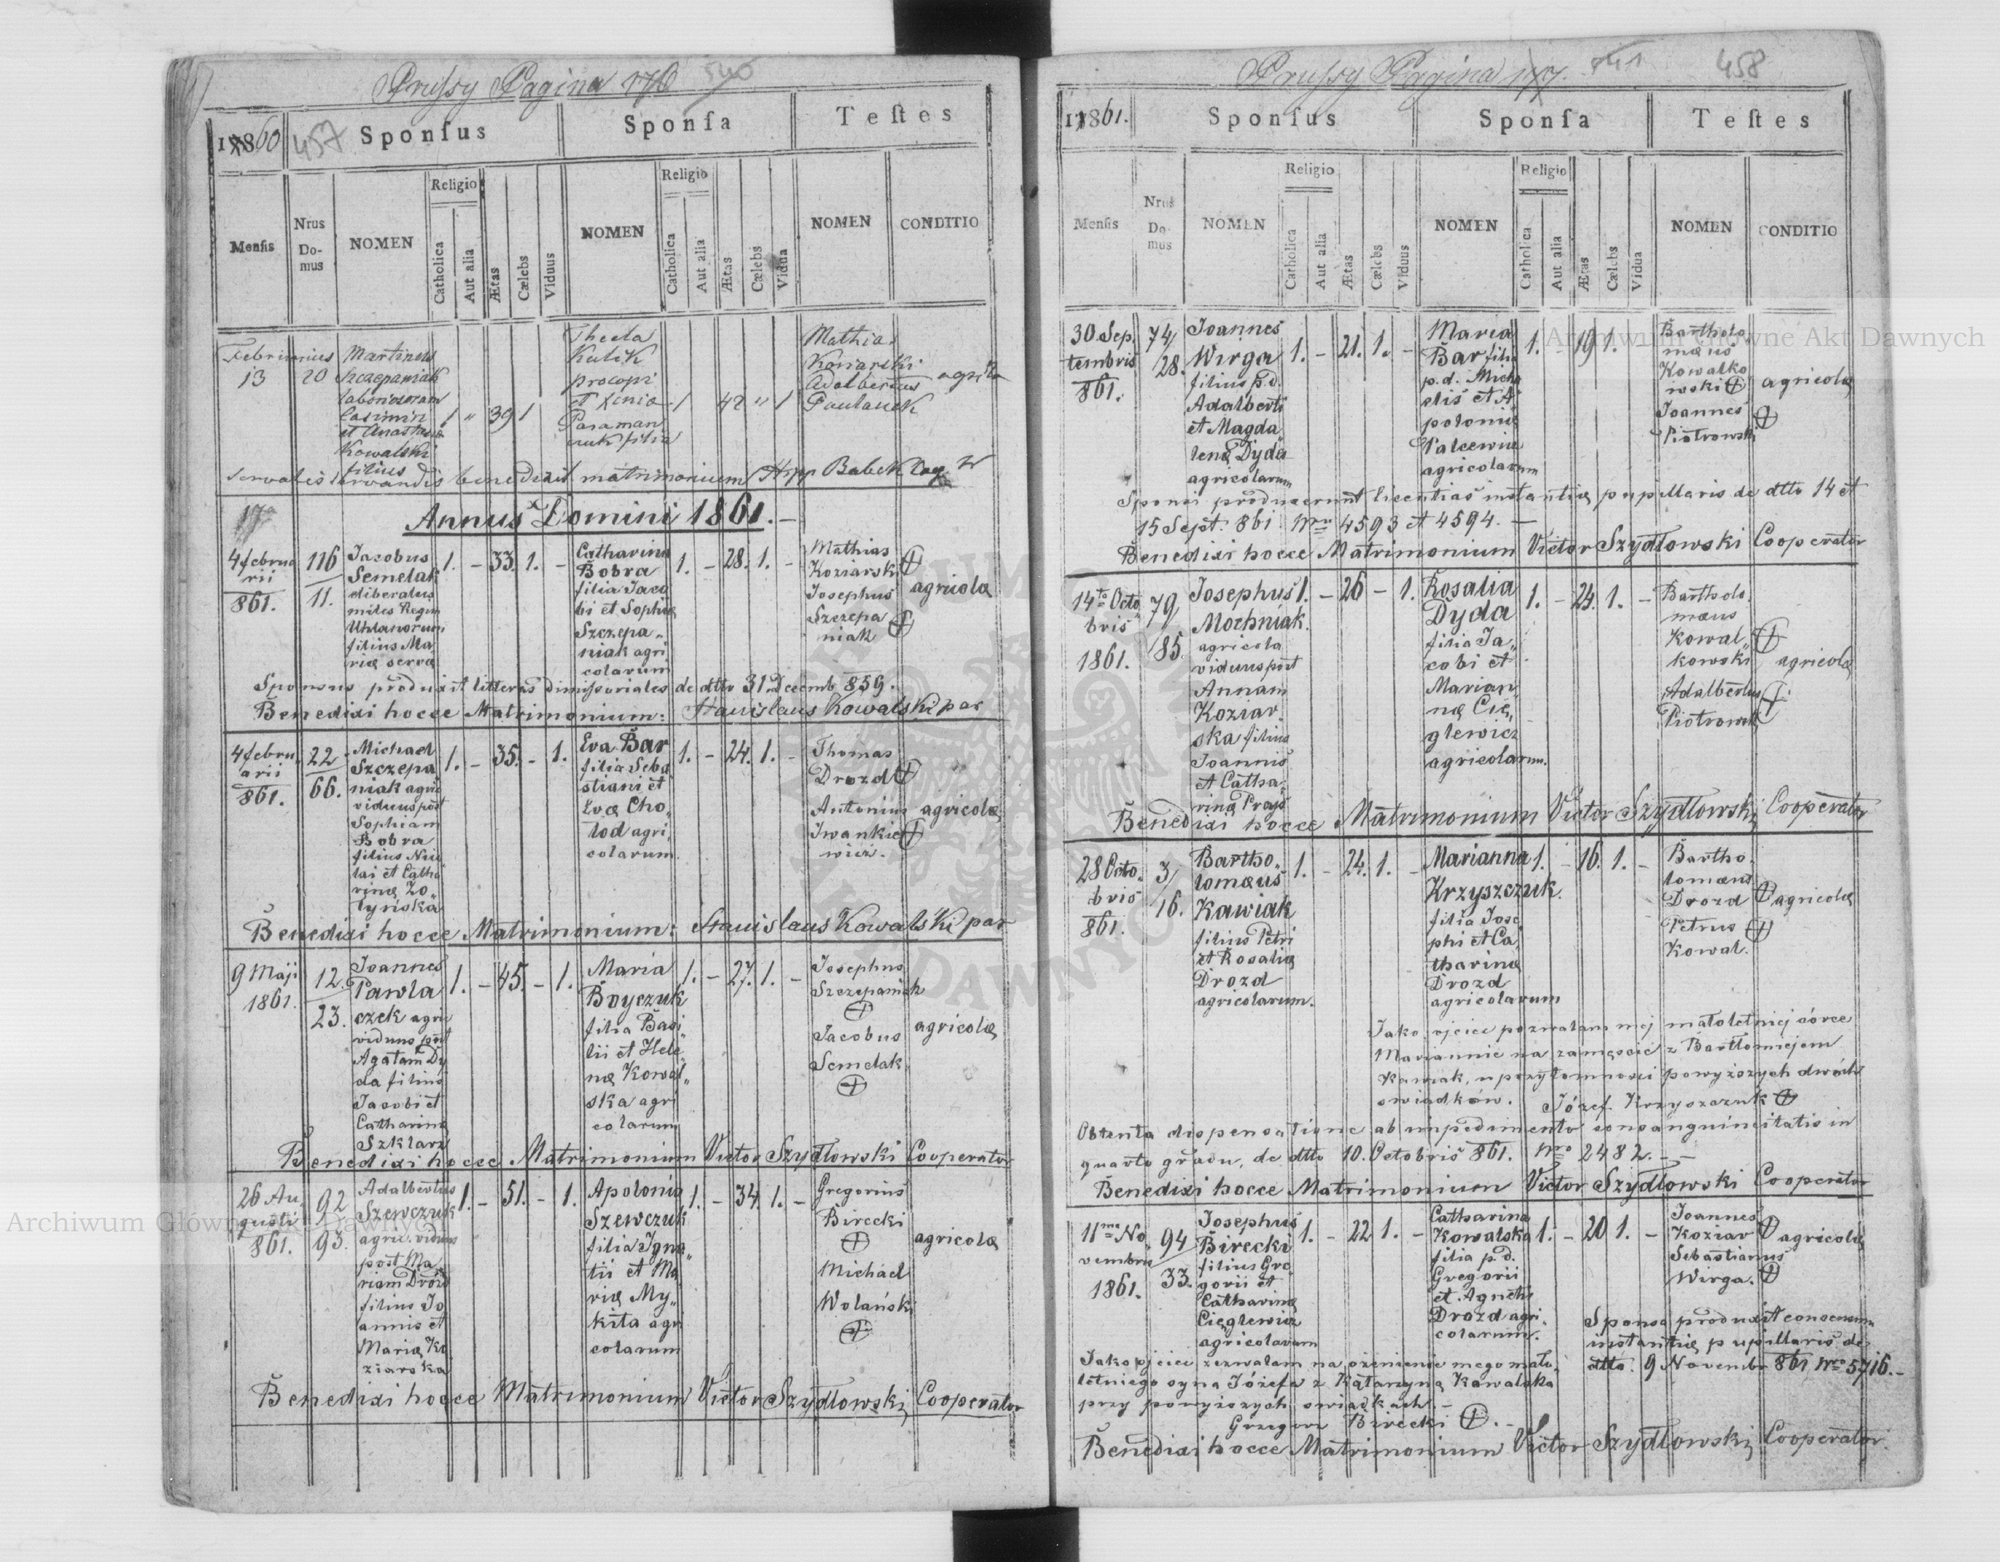 Prussy Pagina 176 540
1860 457 Sponsus Sponsa Testes
Religio Religio
Mensis Nrus Domus NOMEN Catholica Aut alia Ætas Cælebs Viduus NOMEN Catholica Aut alia Ætas Cælebs Vidua NOMEN CONDITIO
Februarius
13
20
Martinus
Szczepaniak
laboriosorum
Casimiri
et Anastasia
Kowalski
filius
1 " 39 1
Thecla
Kulik
procopi
et Xenia
Paraman
czuk filia
1 42 " 1
Mathia
Koniarski
Adalbertus
Paulanek
agricola
servatis servandis benedixit matrimonium Hipp Babek
Annus Domini 1861. –
4 Februa
rii
861.
116
11.
Jacobus
Semelak
diberatus
miles Regim
Uhlanorum
filius Ma
riæ servæ
1. – 33. 1. –
Catharina
Bobra
filia Jaco
bi et Sophiæ
Szczepa„
niak agri
colarum
1. – 28. 1. –
Mathias
Koziarski
Josephus
Szczepa
niak
agricolæ
Sponsus produxit litteras dimissoriales de dtto 31 Decemb 859.
Benedixi hocce Matrimonium: Stanislaus Kowalski par
4 Febru„
arii
861.
22
66.
Michael
Szczepa
niak agri
viduus post
Sophiam
Bobra
filius Nico
lai et Catha
rinæ Zo„
tyńska
1. – 35. – 1.
Eva Bar
filia Seba
stiani et
Evæ Cho„
lod agri„
colarum
1. – 24. 1. –
Thomas
Drozd
Antonius
Iwankie
wicz.
agricolæ
Benedixi hocce Matrimonium: Stanislaus Kowalski par
9 Maji
1861.
12.
23.
Joannes
Pawla
czek agri
viduus post
Agatam Dy
da filius
Jacobi et
Catharina
Szklarz
1. – 45. – 1.
Maria
Boyczuk
filia Basi„
lii et Hele„
næ Kowal„
ska agri
colarum
1. – 27. 1. –
Josephus
Szczepaniak
Jacobus
Semelak
agricolæ
Benedixi hocce Matrimonium Victor Szydlowski Cooperator
26 Au
gusti
861.
92
93.
Adalbertus
Szewczuk
agri. viduus
post Ma„
riam Drozd
filius Jo
annis et
Mariæ Ko
ziarska
1. – 51. – 1.
Apolonia
Szewczuk
filia Igna„
tii et Ma
riæ My„
kita agri
colarum
1. – 34. 1. –
Gregorius
Birecki
Michael
Wolański
agricolæ
Benedixi hocce Matrimonium Victor Szydlowski Cooperator
Prussy Pagina 177. 541 458
1861. Sponsus Sponsa Testes
Religio Religio
Mensis Nrus Domus NOMEN Catholica Aut alia Ætas Cælebs Viduus NOMEN Catholica Aut alia Ætas Cælebs Vidua NOMEN CONDITIO
30 Sep„
tembris
861.
74
28.
Joannes
Wirga
filius p.d.
Adalberti
et Magda
lenæ Dyda
agricolarum
1. – 21. 1. –
Maria
Bar filia
p.d. Micha
elis et A
poloniæ
Palcewicz
agricolarum
1. – 19 1.
Bartholo
mæus
Kowalko
wski
Joannes
Piotrowski
agricolæ
Sponsi produxerunt licentias instantiæ pupillaris de dtto 14 et
15 Sept. 861 Nro 4593 et 4594. –
Benedixi hocce Matrimonium Victor Szydlowski Cooperator
14to Octo
bris
1861.
79
85.
Josephus
Mozhniak.
agricola
viduus post
Annam
Koziar„
ska filius
Joannis
et Catha„
rinæ Prajs
1. – 26 – 1.
Rosalia
Dyda
filia Ja„
cobi et
Marian„
næ Cię„
glewicz
agricolarum.
1. – 24. 1. –
Bartholo„
mæus
Kowal„
kowski
Adalbertus
Piotrowski
agricolæ
Benedixi hocce Matrimonium Victor Szydlowski Cooperator
28 Octo„
bris
861.
3
16.
Bartho„
lomæus
Kawiak
filius Petri
et Rosaliæ
Drozd
agricolarum.
1. – 24. 1. –
Marianna
Krzyszczuk.
filia Jose
phi et Ca„
tharinæ
Drozd
agricolarum
1. – 16. 1. –
Bartho„
lomæus
Drozd
Petrus
Kowal.
agricolæ
Jako ojciec pozwalam mej małoletniej córce
Mariannie na zamęście z Bartłomiejem
Kawiak, w przytomności powyższych dwóch
świadków. Józef Krzyszczuk
Obtenta dispensatione ab impedimento consanguinitatis in
quarto gradu, de dtto 10. Octobris 861. Nro 2482. – –
Benedixi hocce Matrimonium Victor Szydlowski Cooperator
11ma No„
vembris
1861.
94
33.
Josephus
Birecki
filius Gre„
gorii et
Catharinæ
Cięglewicz
agricolarum
1. – 22 1. –
Catharina
Kowalska
filia p.d.
Gregorii
et Agnetis
Drozd agri„
colarum.
1. – 20 1. –
Joannes
Koziar
Sebastianus
Wirga.
agricolæ
Sponsa produxit consensum
instantiæ pupillaris de
dtto. 9 Novembr 861 Nro 5716. –
Jako ojciec zezwalam na ożenienie mego mało„
letniego syna Józefa z Katarzyną Kowalska
przy powyższych świadkach. –
Gregorz Birecki
Benedixi hocce Matrimonium Victor Szydlowski Cooperator
Archiwum Główne Akt Dawnych
Archiwum Główne Akt Dawnych